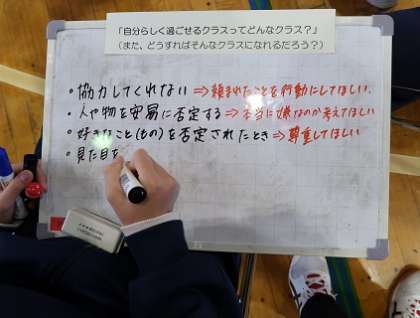 「自分らしく過ごせるクラスってどんなクラス？」
（また、どうすればそんなクラスになれるだろう？）
・協力してくれない ⇒頼まれたことを行動にしてほしい.
・人や物を安易に否定する ⇒本当に嫌なのか考てほしい
・好きなこと(もの)を否定されたとき ⇒尊重してほしい
・見た目を